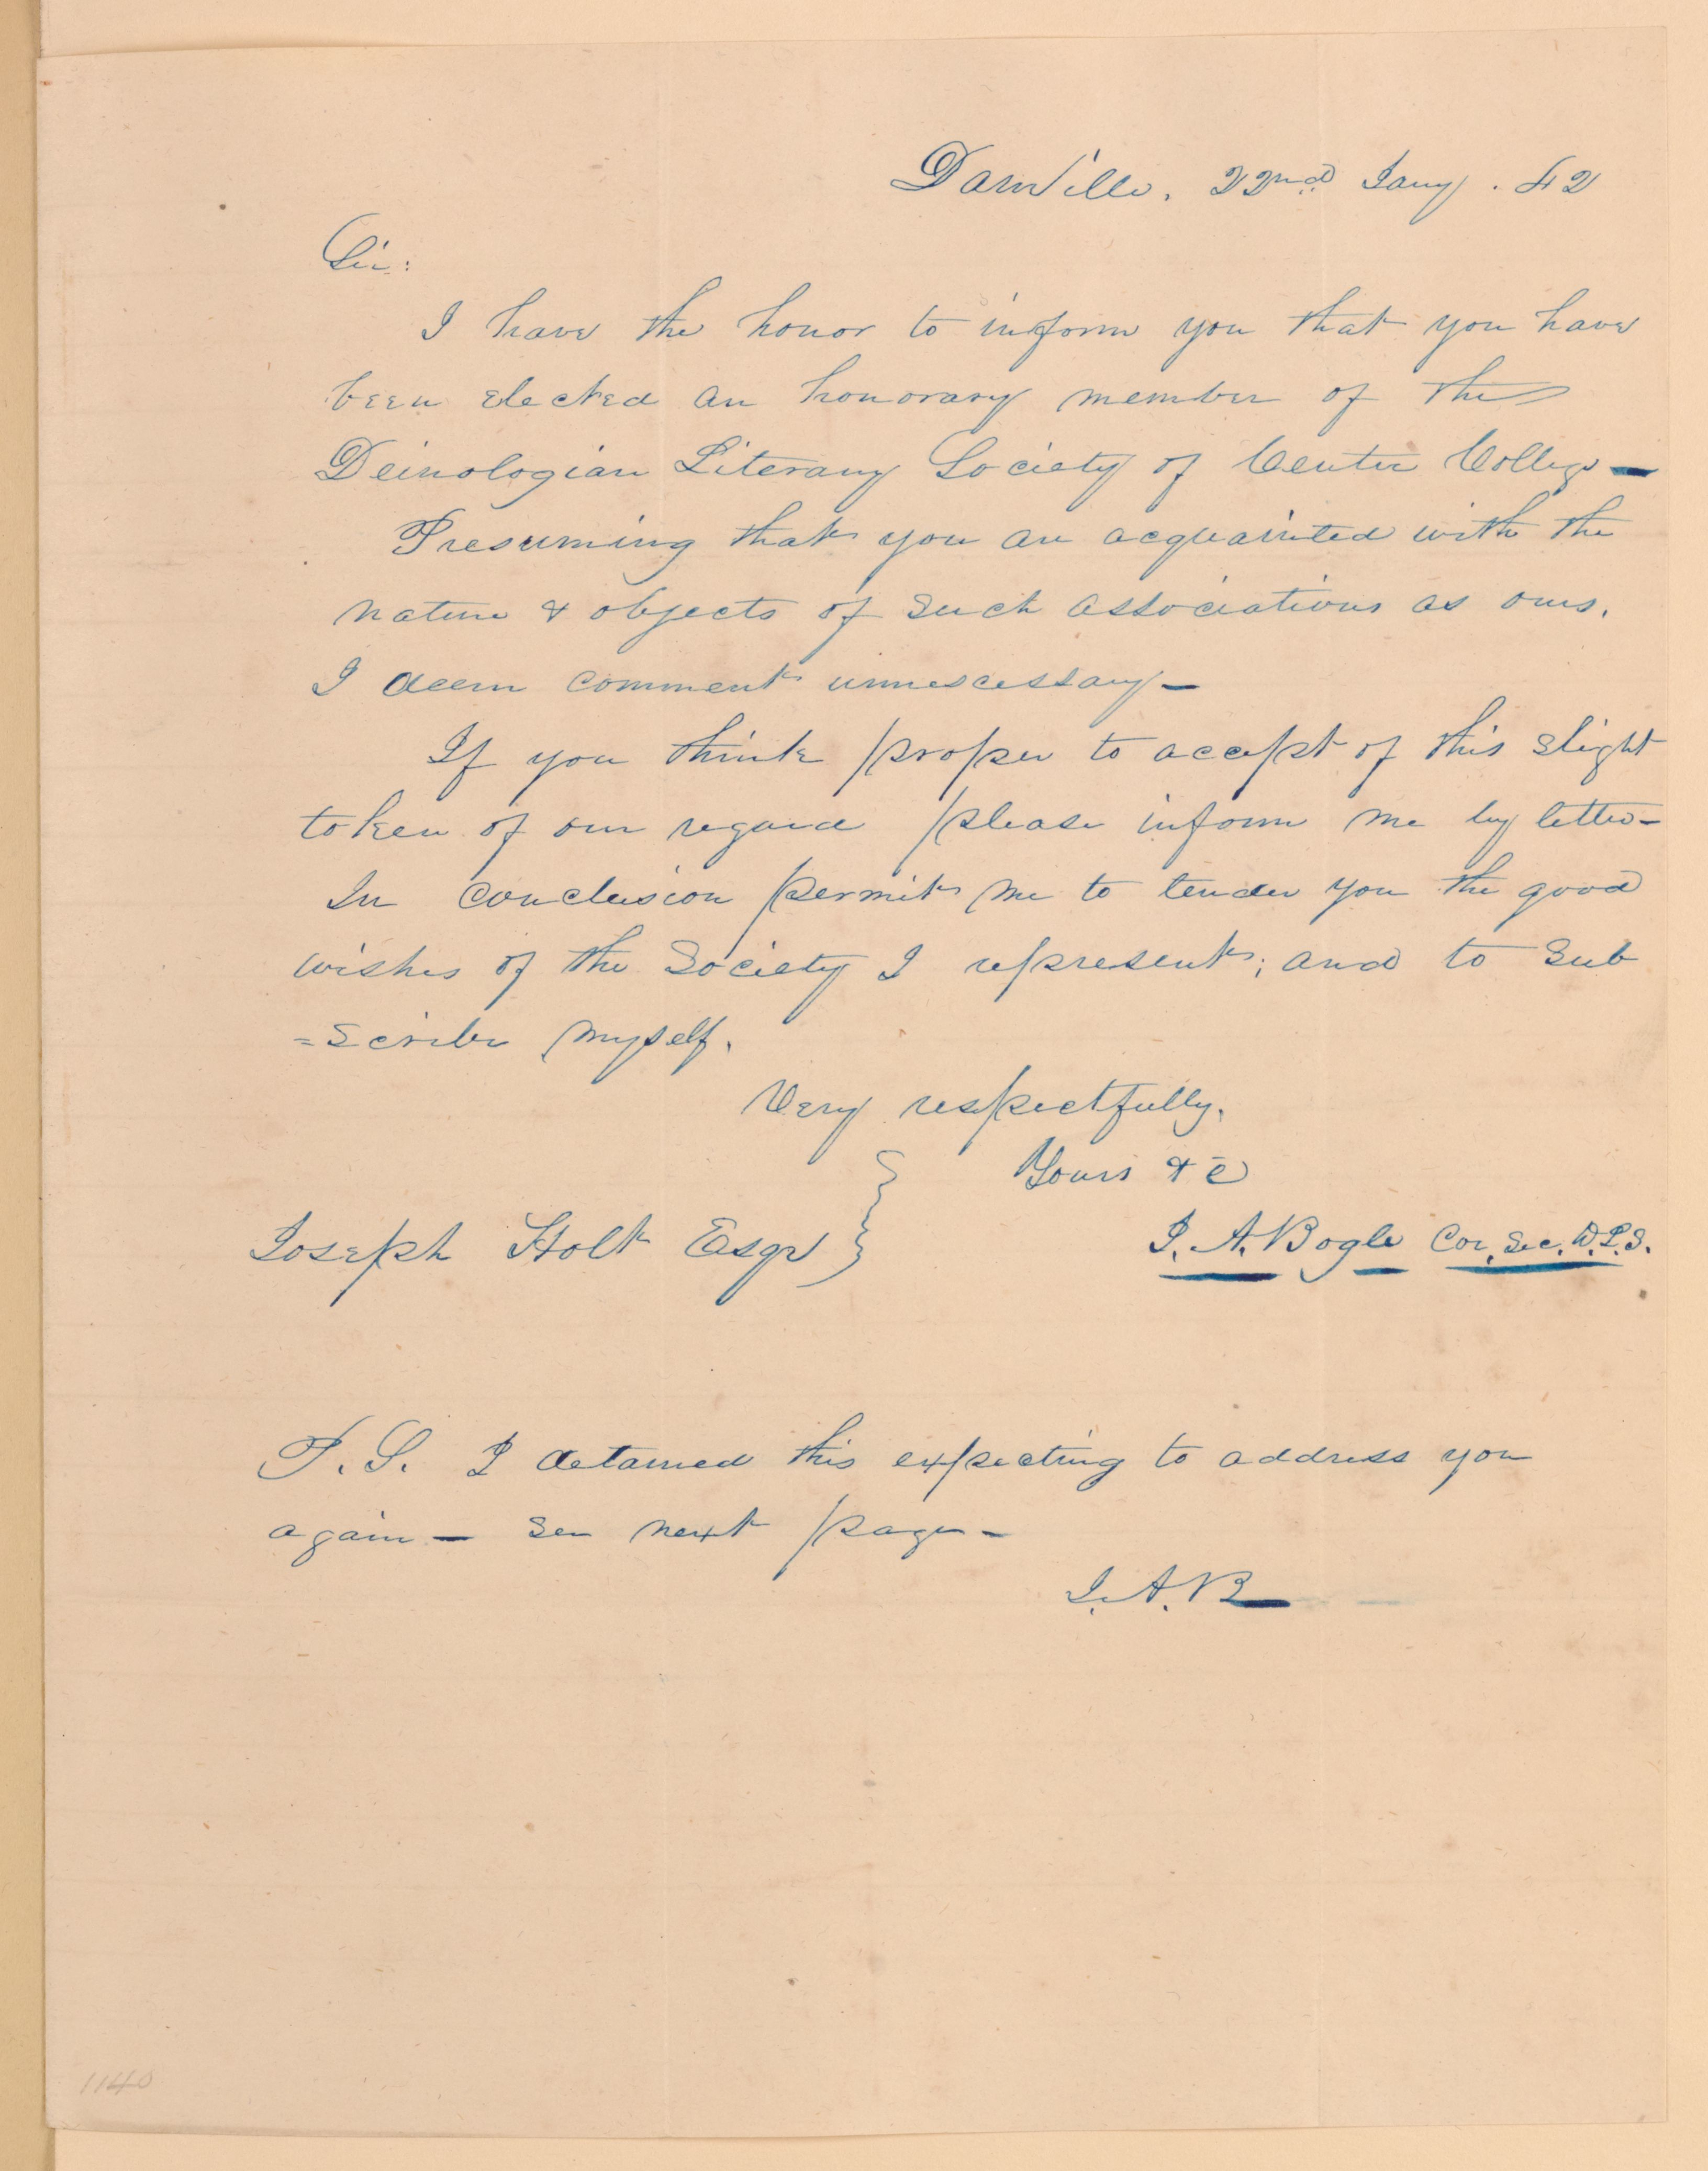 Danville, 22nd Jany. 42
Sir:
I have the honor to inform you that you have
been elected an honorary member of the
Deinologian Literary Society of Center College —
Presuming that you are acquainted with the
nature & objects of such associations as ours,
I deem comment unnescessary —
If you think proper to accept of this slight
token of our regard please inform me by letter —
In conclusion permit me to tender you the good
wishes of the Society I represent; and to sub
=scribe myself.
Very respectfully,
Yours &c
Joseph Holt Esqr } J. A. Bogle Cor. Sec. D.L.S.
P.S. I detained this expecting to address you
again — see next page —
J.A.B
1140